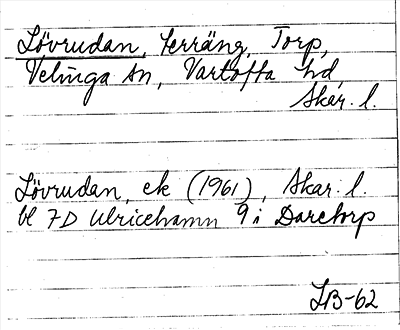 Lövrudan, terräng, Torp,
Velinga sn, Vartofta hd,
Skar. l.
Lövrudan, ek (1961), Skar. l.
bl 7D Ulricehamn 9i Daretorp
LB-62